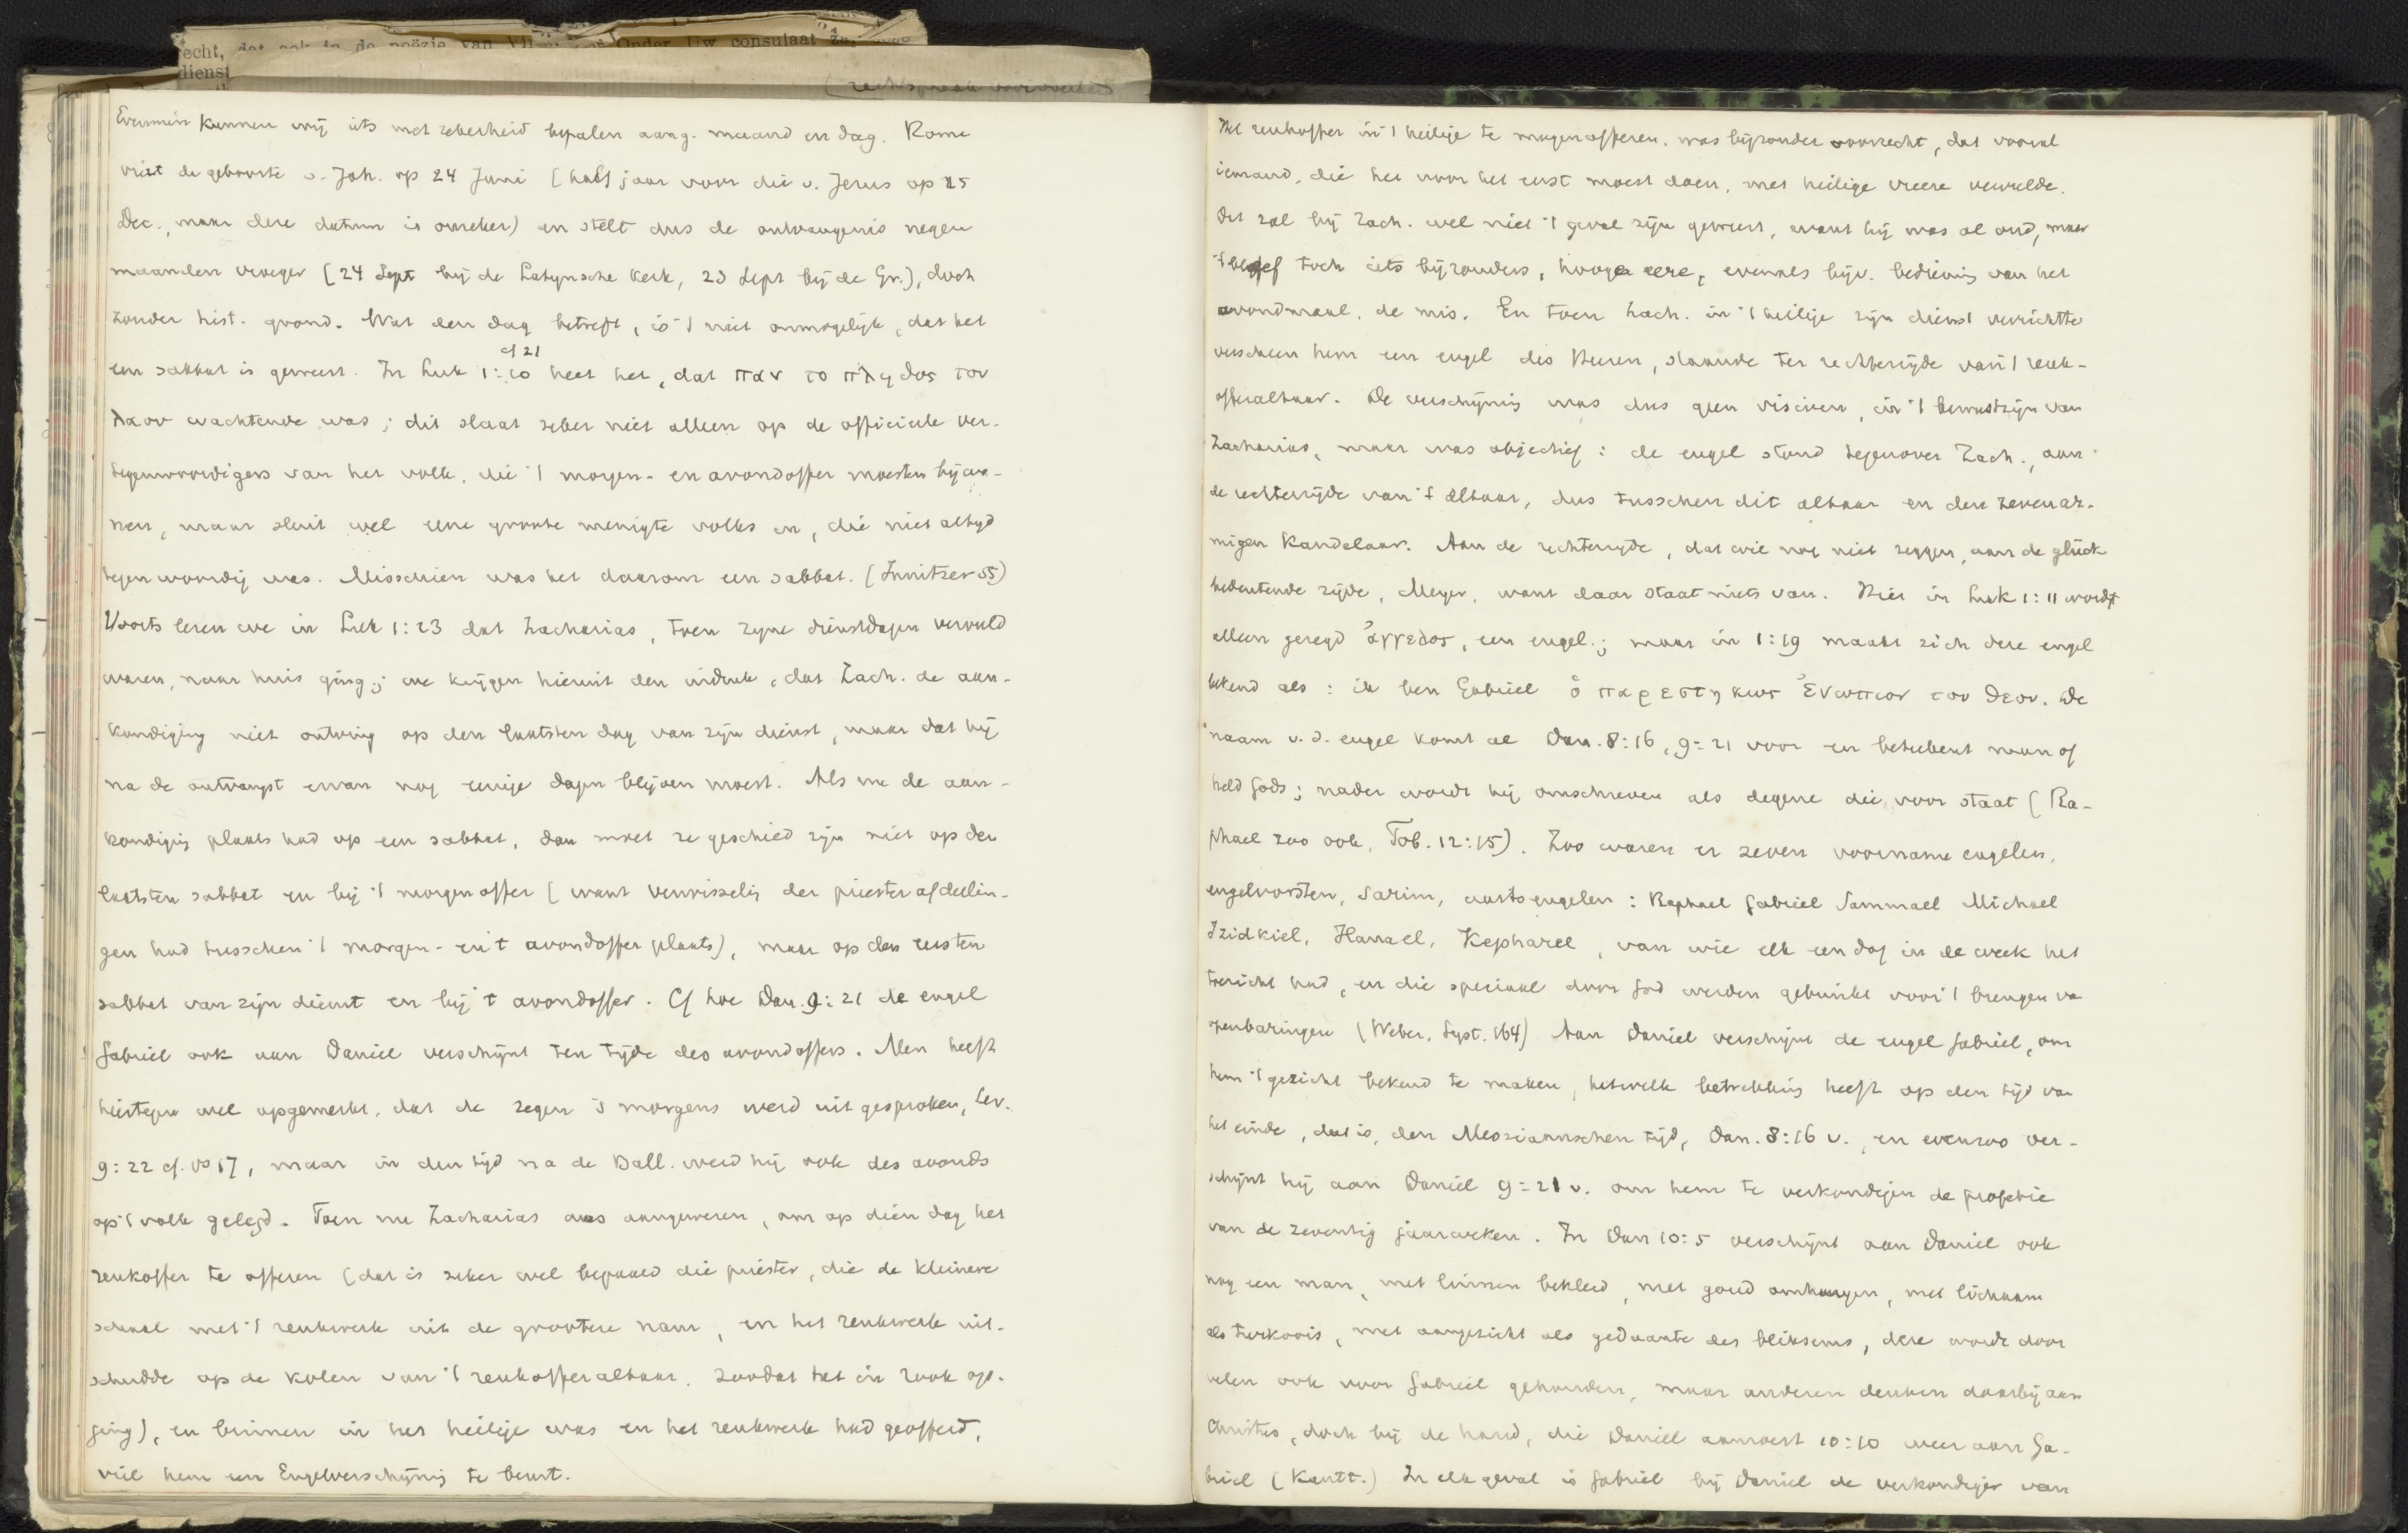 echt, dat ook in de poëzie van Onder Uw consulaat
dienst
Evenmin kunnen wij iets met zekerheid bepalen aang. maand en dag. Rome
viert de geboorte v. Joh. op 24 Juni (half jaar voor die v. Jezus op 25
Dec., maar deze datum is onzeker) en stelt dus de ontvangenis negen
maanden vroeger (24 Sept bij de Latijnsche kerk, 23 Sept bij de Gr.), doch
zonder hist. grond. Wat den dag betreft, is 't niet onmogelijk, dat het
cf 21
een sabbat is geweest. In Luk 1:10 heet het, dat παν το πληθος του
λαου wachtende was; dit slaat zeker niet alleen op de officieele ver-
tegenwoordigers van het volk, die 't morgen- en avondoffer moesten bijwo-
nen, maar sluit wel eene groote menigte volks in, die niet altijd
tegenwoordig was. Misschien was het daarom een sabbat. (Innitzer 55)
Voorts lezen we in Luk 1:23 dat Zacharias, toen zijne dienstdagen vervuld
waren, naar huis ging; we krijgen hieruit den indruk, dat Zach. de aan-
kondiging niet ontving op den laatsten dag van zijn dienst, maar dat hij
na de ontvangst ervan nog eenige dagen blijven moest. Als nu de aan-
kondiging plaats had op een sabbat, dan moet ze geschied zijn niet op den
laatsten sabbat en bij 't morgenoffer (want verwisseling der priesterafdeelin-
gen had tusschen 't morgen- en 't avondoffer plaats), maar op den eersten
sabbat van zijn dienst en bij 't avondoffer. Cf hoe Dan. 9:21 de engel
Gabriël ook aan Daniël verschijnt ten tijde des avondoffers. Men heeft
hiertegen wel opgemerkt, dat de zegen 's morgens werd uitgesproken, Lev.
9:22 cf. vs 17, maar in den tijd na de Ball. werd hij ook des avonds
op 't volk gelegd. Toen nu Zacharias was aangewezen, om op dien dag het
reukoffer te offeren (dat is zeker wel bepaald die priester, die de kleinere
schaal met 't reukwerk uit de grootere nam, en het reukwerk uit-
schudde op de kolen van 't reukofferaltaar, zoodat het in rook op-
ging), en binnen in het heilige was en het reukwerk had geofferd,
viel hem een Engelverschijning te beurt.
Het reukoffer in 't heilige te mogen offeren, was bijzonder voorrecht, dat vooral
iemand, die het voor het eerst moest doen, met heilige vreeze vervulde.
Dit zal bij Zach. wel niet 't geval zijn geweest, want hij was al oud, maar
't bleef toch iets bijzonders, hooge eere, evenals bijv. bediening van het
avondmaal, de mis. En toen Zach. in 't heilige zijn dienst verrichtte
verscheen hem een engel des Heeren, staande ter rechterzijde van 't reuk-
offeraltaar. De verschijning was dus geen visioen, in 't bewustzijn van
Zacharias, maar was objectief: de engel stond tegenover Zach., aan
de rechterzijde van 't altaar, dus tusschen dit altaar en den zevenar-
migen kandelaar. Aan de rechterzijde, dat wil nog niet zeggen, aan de glück
bedeutende zijde, Meyer, want daar staat niets van. Hier in Luk 1:11 wordt
alleen gezegd ἀγγελος, een engel; maar in 1:19 maakt zich deze engel
bekend als: ik ben Gabriël ὁ παρεστηκως ἐνωπιον του θεου. De
naam v.d. engel komt al Dan. 8:16, 9:21 voor en beteekent man of
held Gods; nader wordt hij omschreven als degene die voor staat (Ra-
phael zoo ook, Tob. 12:15). Zoo waren er zeven voorname engelen,
engelvorsten, Sarim, aartsengelen: Raphael Gabriel Sammael Michael
Izidkiel, Hanael, Kepharel, van wie elk een dag in de week het
toezicht had, en die speciaal door God werden gebruikt voor 't brengen va
openbaringen (Weber, Syst. 164) Aan Daniël verschijnt de engel Gabriël, om
hem 't gezicht bekend te maken, hetwelk betrekking heeft op den tijd van
het einde, dat is, den Messiaanschen tijd, Dan. 8:16 v., en evenzoo ver-
schijnt hij aan Daniël 9:21 v. om hem te verkondigen de profetie
van de zeventig jaarweken. In Dan 10:5 verschijnt aan Daniël ook
nog een man, met linnen bekleed, met goud omhangen, met lichaam
als turkoois, met aangezicht als gedaante des bliksems, deze wordt door
velen ook voor Gabriël gehouden, maar anderen denken daarbij aan
Christus, doch bij de hand, die Daniël aanroert 10:10 weer aan Ga-
briel (Kautt.) In elk geval is Gabriël bij Daniël de verkondiger van